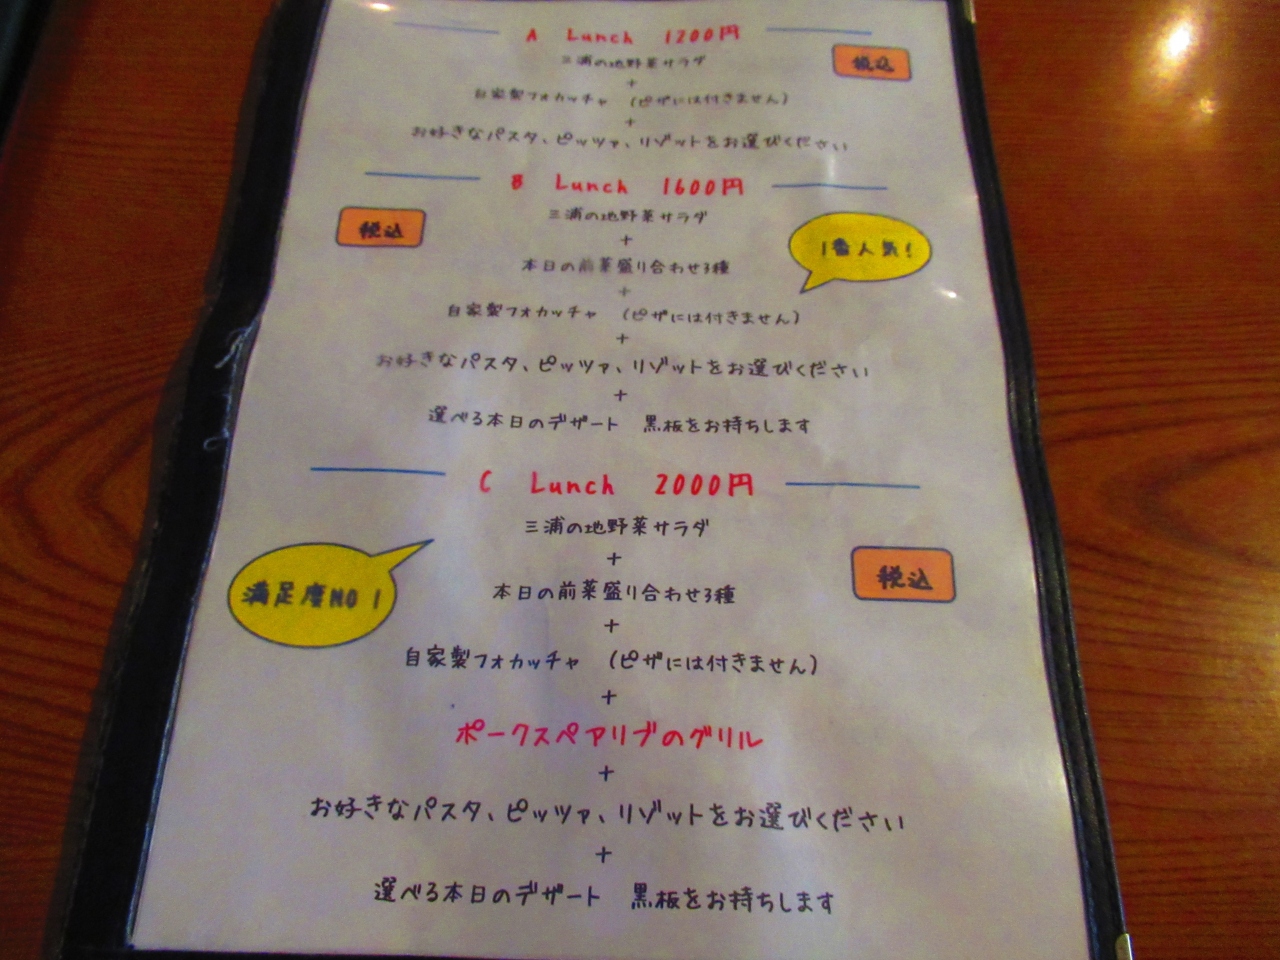 A Lunch 1200円
税込
三浦の地野菜サラダ
+
自家製フォカッチャ (ピザには付きません)
+
お好きなパスタ、ピッツァ、リゾットをお選びください
B Lunch 1600円
税込
三浦の地野菜サラダ
1番人気!
+
本日の前菜盛り合わせ3種
+
自家製フォカッチャ (ピザには付きません)
+
お好きなパスタ、ピッツァ、リゾットをお選びください
+
選べる本日のデザート 黒板をお持ちします
C Lunch 2000円
三浦の地野菜サラダ
+
税込
満足度NO1
本日の前菜盛り合わせ3種
+
自家製フォカッチャ (ピザには付きません)
+
ポークスペアリブのグリル
+
お好きなパスタ、ピッツァ、リゾットをお選びください
+
選べる本日のデザート 黒板をお持ちします